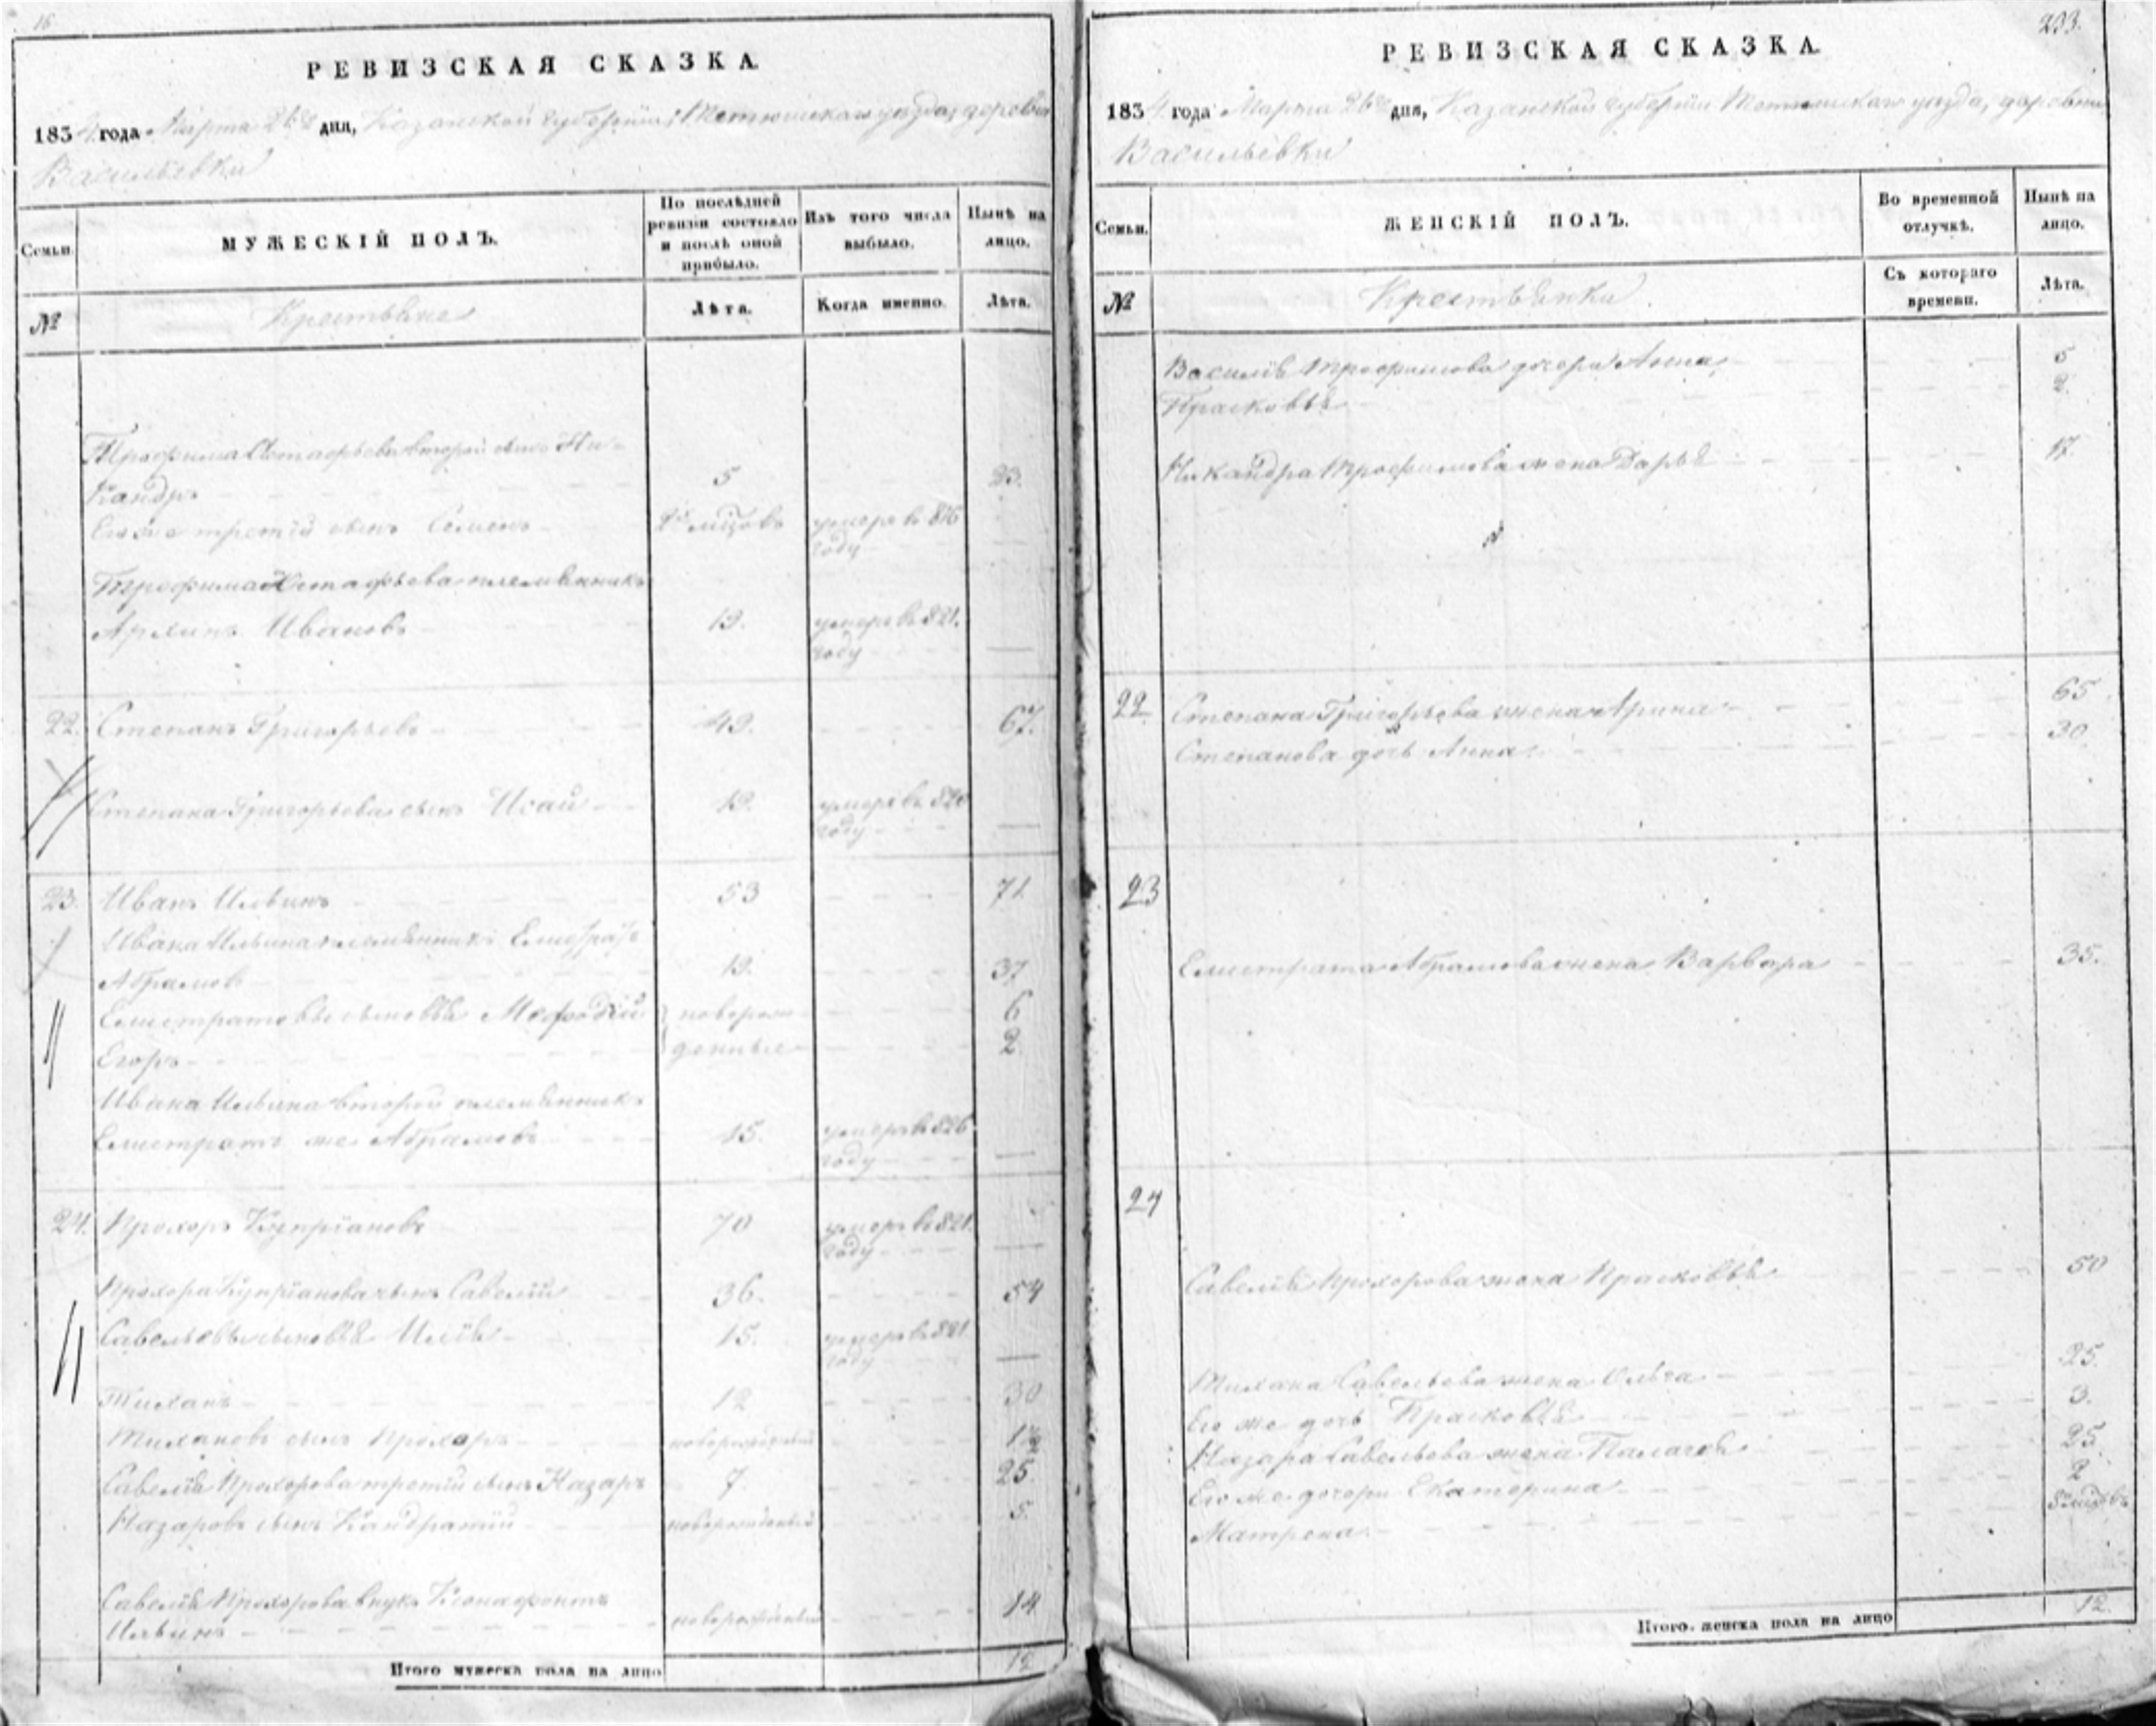 16
РЕВИЗСКАЯ СКАЗКА
1834 года Марта 26го дня, Казанской губернiи, Тетюшскаго уѣзда, деревни
Васильевки
Семьи.
МУЖЕСКІЙ ПОЛЪ.
По послѣдней ревизіи состояло и послѣ оной прибыло.
Изъ того числа выбыло.
Нынѣ на лицо.
№
Крестьяне
Лѣта.
Когда именно.
Лѣта.
Трофима Астафьева второй сынъ Ни-
кандръ 5 23.
Его же третiй сынъ Семенъ мѣсяцовъ умеръ въ 816
году
Трофима Астафьева племянникъ
Архипъ Ивановъ 19. умеръ въ 821.
году
22. Степанъ Григорьевъ 49. 67.
Степана Григорьева сынъ Исай 19. умеръ въ 820
году
23. Иванъ Ильинъ 53 71
Ивана Ильина племянникъ Елистратъ
Абрамовъ 19. 37
Елистратовы сыновья Мефодiй новорож- 6
Егоръ денные 2
Ивана Ильина второй племянникъ
Елистратъ же Абрамовъ 15. умеръ въ 826
году
24. Прохоръ Купрiановъ 70 умеръ въ 821.
году
Прохора Купрiанова сынъ Савелiй 36. 54
Савельевы сыновья Илья 15. умеръ въ 821
году
Тиханъ 12 30
Тихановъ сынъ Прохоръ новорожденный
Савелiя Прохорова третiй сынъ Назаръ 7. 25.
Назаровъ сынъ Кандратiй новорожденный 5.
Савелiя Прохорова внукъ Ксенофонтъ
Ильинъ новорожденный 14
Итого мужеска пола на лицо 12
203.
РЕВИЗСКАЯ СКАЗКА.
1834 года Марта 26го дня, Казанской губернiи Тетюшскаго уѣзда, деревни
Васильевки
Семьи.
ЖЕНСКІЙ ПОЛЪ.
Во временной отлучкѣ.
Нынѣ на лицо.
№
Крестьянки
Съ котораго времени.
Лѣта.
Василiя Трофимова дочери Анна 5
Прасковья 2.
Никандра Трофимова жена Дарья 17.
22 Степана Григорьева жена Арина 65
Степанова дочь Анна 30
23
Елистрата Абрамова жена Варвара 35.
24
Савелiя Прохорова жена Прасковья 50
Тихана Савельева жена Ольга 25.
Его же дочь Прасковья 3.
Назара Савельева жена Палагея 25.
Его же дочери Екатерина 2
Матрена мѣсяцовъ
Итого женска пола на лицо 12.